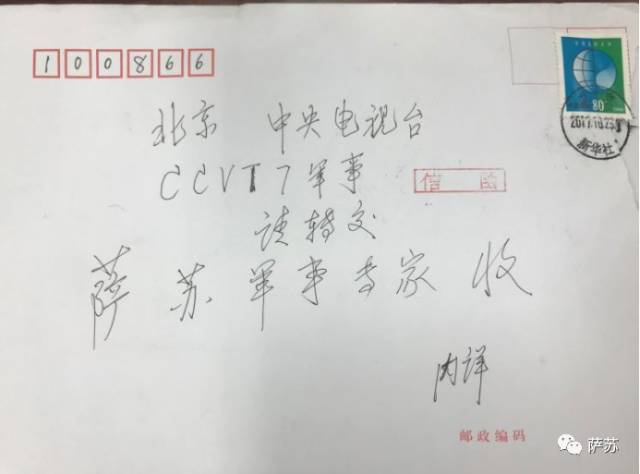 100866
80
2017.10.25
新华社
北京 中央电视台
CCVT7军事
信函
请转交
萨苏军事专家 收
内详
邮政编码
萨苏